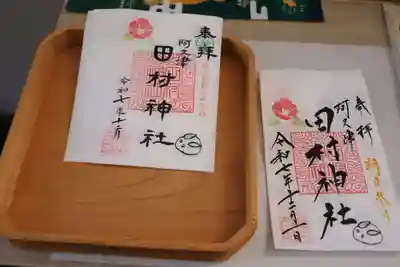 奉拝
阿久津
田村神社
令和七年十二月
奉拝
阿久津
田村神社
令和七年十二月一日